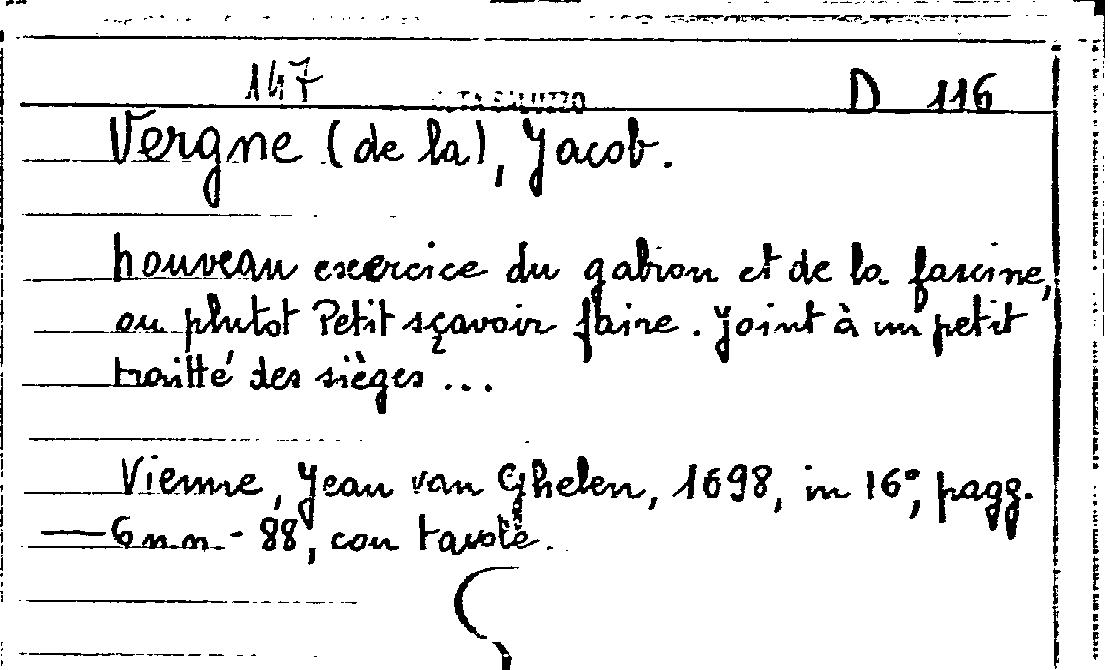 147 D 116
Vergne (de la), Jacob.
nouveau exercice du gabion et de la fascine,
ou plutot Petit sçavoir faire. Joint à un petit
traitté des sièges...
Vienne, Jean van Ghelen, 1698, in 16°, pagg.
6 n.n. - 88, con tavole.